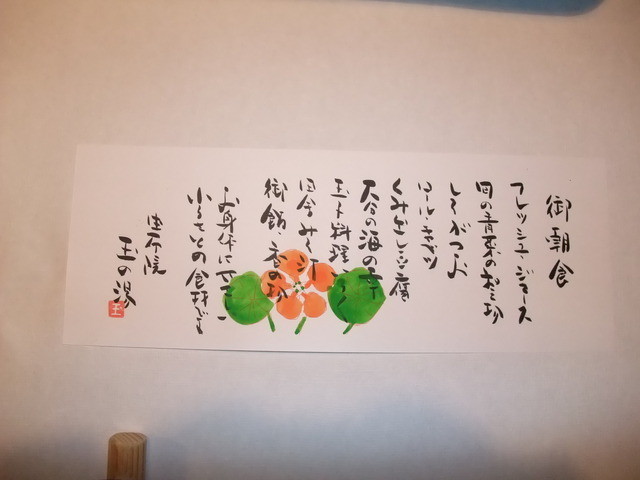 御朝食
フレッシュ・ジュース
旬の青菜のおひたし
しらがつお
ロールキャベツ
くみ出し豆腐
大分の海の幸
玉子料理
田舎みそ汁
御飯・香の物
お身体にやさしい
ふるさとの食材です
由布院
玉の湯
玉